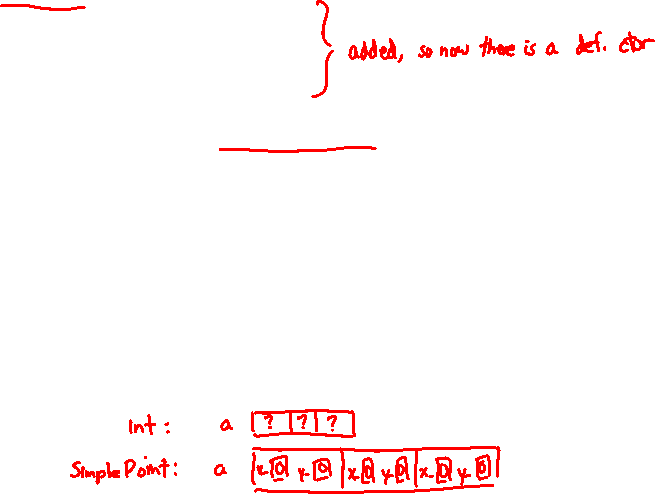 added, so now there is a def. ctor
int: a ? ? ?
SimplePoint: a x 0 y 0 x 0 y 0 x 0 y 0